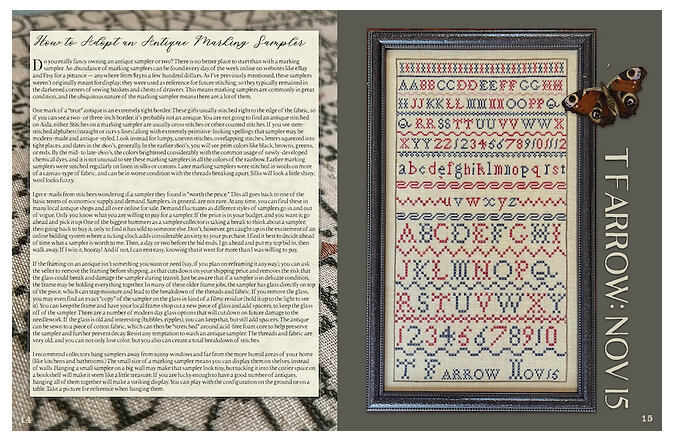 How to Adopt an Antique Marking Sampler
Do you really fancy owning an antique sampler or two? There is no better place to start than with a marking
sampler. An abundance of marking samplers can be found every day of the week online on websites like eBay
and Etsy for a pittance — anywhere from $25 to a few hundred dollars. As I've previously mentioned, these samplers
weren't originally meant for display; they were used as reference for future stitching, so they typically remained in
the darkened corners of sewing baskets and chests of drawers. This means marking samplers are commonly in great
condition, and the ubiquitous nature of the marking sampler means there are a lot of them.
One mark of a "true" antique is an extremely tight border. These girls usually stitched right to the edge of the fabric, so
if you can see a two- or three-inch border, it's probably not an antique. You are not going to find an antique stitched
on Aida, either. Stitches on a marking sampler are usually cross stitches or other counted stitches. If you see stem-
stitched alphabets (straight or curvy lines) along with extremely primitive-looking spellings that sampler may be
modern-made and antique-styled. Look instead for lumps, uneven stitches, overlapping stitches, letters squeezed into
tight places, and dates in the 1800's, generally. In the earlier 1800's, you will see prim colors like black, browns, greens,
or reds. By the mid- to late-1800's, the colors brightened considerably with the common usage of newly-developed
chemical dyes, and it is not unusual to see these marking samplers in all the colors of the rainbow. Earlier marking
samplers were stitched regularly on linen in silks or cottons. Later marking samplers were stitched in wools on more
of a canvas-type of fabric, and can be in worse condition with the threads breaking apart. Silks will look a little shiny,
wool looks fuzzy.
I get e-mails from stitchers wondering if a sampler they found is "worth the price." This all goes back to one of the
basic tenets of economics: supply and demand. Samplers, in general, are not rare. At any time, you can find these in
many local antique shops and all over online for sale. Demand fluctuates as different styles of samplers go in and out
of vogue. Only you know what you are willing to pay for a sampler. If the price is in your budget, and you want it, go
ahead and pick it up! One of the biggest bummers as a sampler collector is taking a break to think about a sampler,
then going back to buy it, only to find it has sold to someone else. Don't, however, get caught up in the excitement of an
online bidding system where a ticking clock adds considerable anxiety to your purchase. I find it best to decide ahead
of time what a sampler is worth to me. Then, a day or two before the bid ends, I go ahead and put my top bid in, then
walk away. If I win it, hooray! And if not, I can rest easy, knowing that it went for more than I was willing to pay.
If the framing on an antique isn't something you want or need (say, if you plan on reframing it anyway), you can ask
the seller to remove the framing before shipping, as that cuts down on your shipping price and removes the risk that
the glass could break and damage the sampler during transit. Just be aware that if a sampler is in delicate condition,
the frame may be holding everything together. In many of these older frame jobs, the sampler has glass directly on top
of the piece, which can trap moisture and lead to the breakdown of the threads and fabric. If you remove the glass,
you may even find an exact "copy" of the sampler on the glass in kind of a filmy residue (hold it up to the light to see
it). You can keep the frame and have your local frame shop cut a new piece of glass and add spacers, to keep the glass
off of the sampler. There are a number of modern day glass options that will cut down on future damage to the
needlework. If the glass is old and interesting (bubbles, ripples), you can keep that, but still add spacers. The antique
can be sewn to a piece of cotton fabric, which can then be "stretched" around acid-free foam core to help preserve
the sampler and further prevent decay. Resist any temptation to wash an antique sampler. The threads and fabric are
very old, and you can not only lose color, but you also can create a total breakdown of stitches.
I recommend collectors hang samplers away from sunny windows and far from the more humid areas of your home
(like kitchens and bathrooms.) The small size of a marking sampler means you can display them on shelves, instead
of walls. Hanging a small sampler on a big wall may make that sampler look tiny, but tucking it into the cozier space on
a bookshelf will make it seem like a little treasure. If you are lucky enough to have a good number of antiques,
hanging all of them together will make a striking display. You can play with the configuration on the ground or on a
table. Take a picture for reference when hanging them.
14
AABBCCDDEEFFGGHH
IIJJKKLLMMNNOOPP
QQRRSSTTUUVVWWX
XYYZZ1234567891011
abcdefghiklmnopqrst
uvwxyz
ABCDEFGHI
JKLMNOPQ
RSTUVWXYZ
12345678910
T F ARROW NOV 15
T F ARROW: NOV 15
15